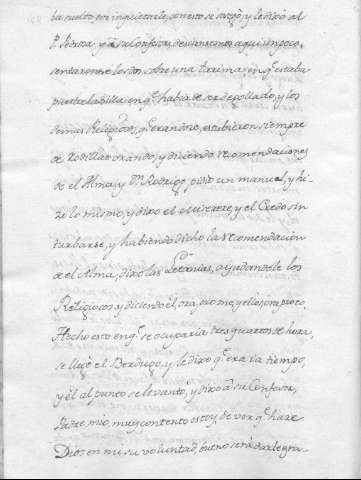 ba suelto por inquietarle, con esto se sosegó, y le dixo al
P. Pedrosa, y a su Confesor, descansemos aqui un poco,
sentaronse los dos sobre una tarima, en q.e estaba
puesta la silla en q.e habia de ser degollado, y los
demas Religiosos, q.e eran doze, estubieron siempre
de rodillas orando, y diciendo recomendaciones
de el Alma, y D.n Rodrigo, pidio un manual, y hi-
zo lo mismo, y dixo el miserere, y el Credo sin
turbarse, y habiendo dicho la recomendacion
de el Alma, dixo las Letanias, ayudandole los
Religiosos, y diciendo el, ora pro me, y ellos, ora pro eo.
Hecho esto en q.e se ocuparia tres quartos de hora,
se llegó el Berdugo, y le dixo q.e era ia tiempo,
y él al punto se levantó, y dixo a su Confesor,
Padre mio, muy contento estoy, de ver q.e hace
Dios en mi su voluntad, bueno será darle gra-